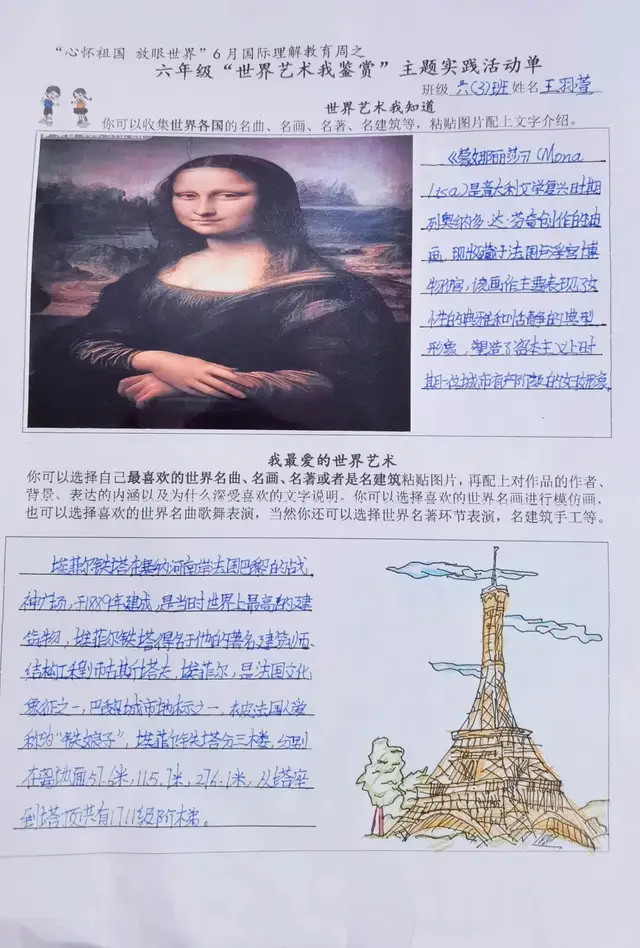 “心怀祖国 放眼世界”6月国际理解教育周之
六年级“世界艺术我鉴赏”主题实践活动单
班级 六(3)班 姓名 王羽萱
世界艺术我知道
你可以收集世界各国的名曲、名画、名著、名建筑等，粘贴图片配上文字介绍。
《蒙娜丽莎》（Mona
Lisa）是意大利文艺复兴时期
列奥纳多·达·芬奇创作的油
画，现收藏于法国卢浮宫博
物馆，该画作主要表现了女
性的典雅和恬静的典型
形象，塑造了资本主义上升时
期一位城市有产阶级的妇女形象。
我最爱的世界艺术
你可以选择自己最喜欢的世界名曲、名画、名著或者是名建筑粘贴图片，再配上对作品的作者、
背景、表达的内涵以及为什么深受喜欢的文字说明。你可以选择喜欢的世界名画进行模仿画，
也可以选择喜欢的世界名曲歌舞表演，当然你还可以选择世界名著环节表演，名建筑手工等。
埃菲尔铁塔在塞纳河南岸法国巴黎的战
神广场，于1889年建成，是当时世界上最高的建
筑物，埃菲尔铁塔得名于他的著名建筑师、
结构工程师古斯塔夫，埃菲尔，是法国文化
象征之一，巴黎城市地标之一，被法国人爱
称为“铁娘子”，埃菲尔铁塔分三楼，分别
在离地面57.6米，115.7米，276.1米，从塔座
到塔顶共有1711级阶梯。